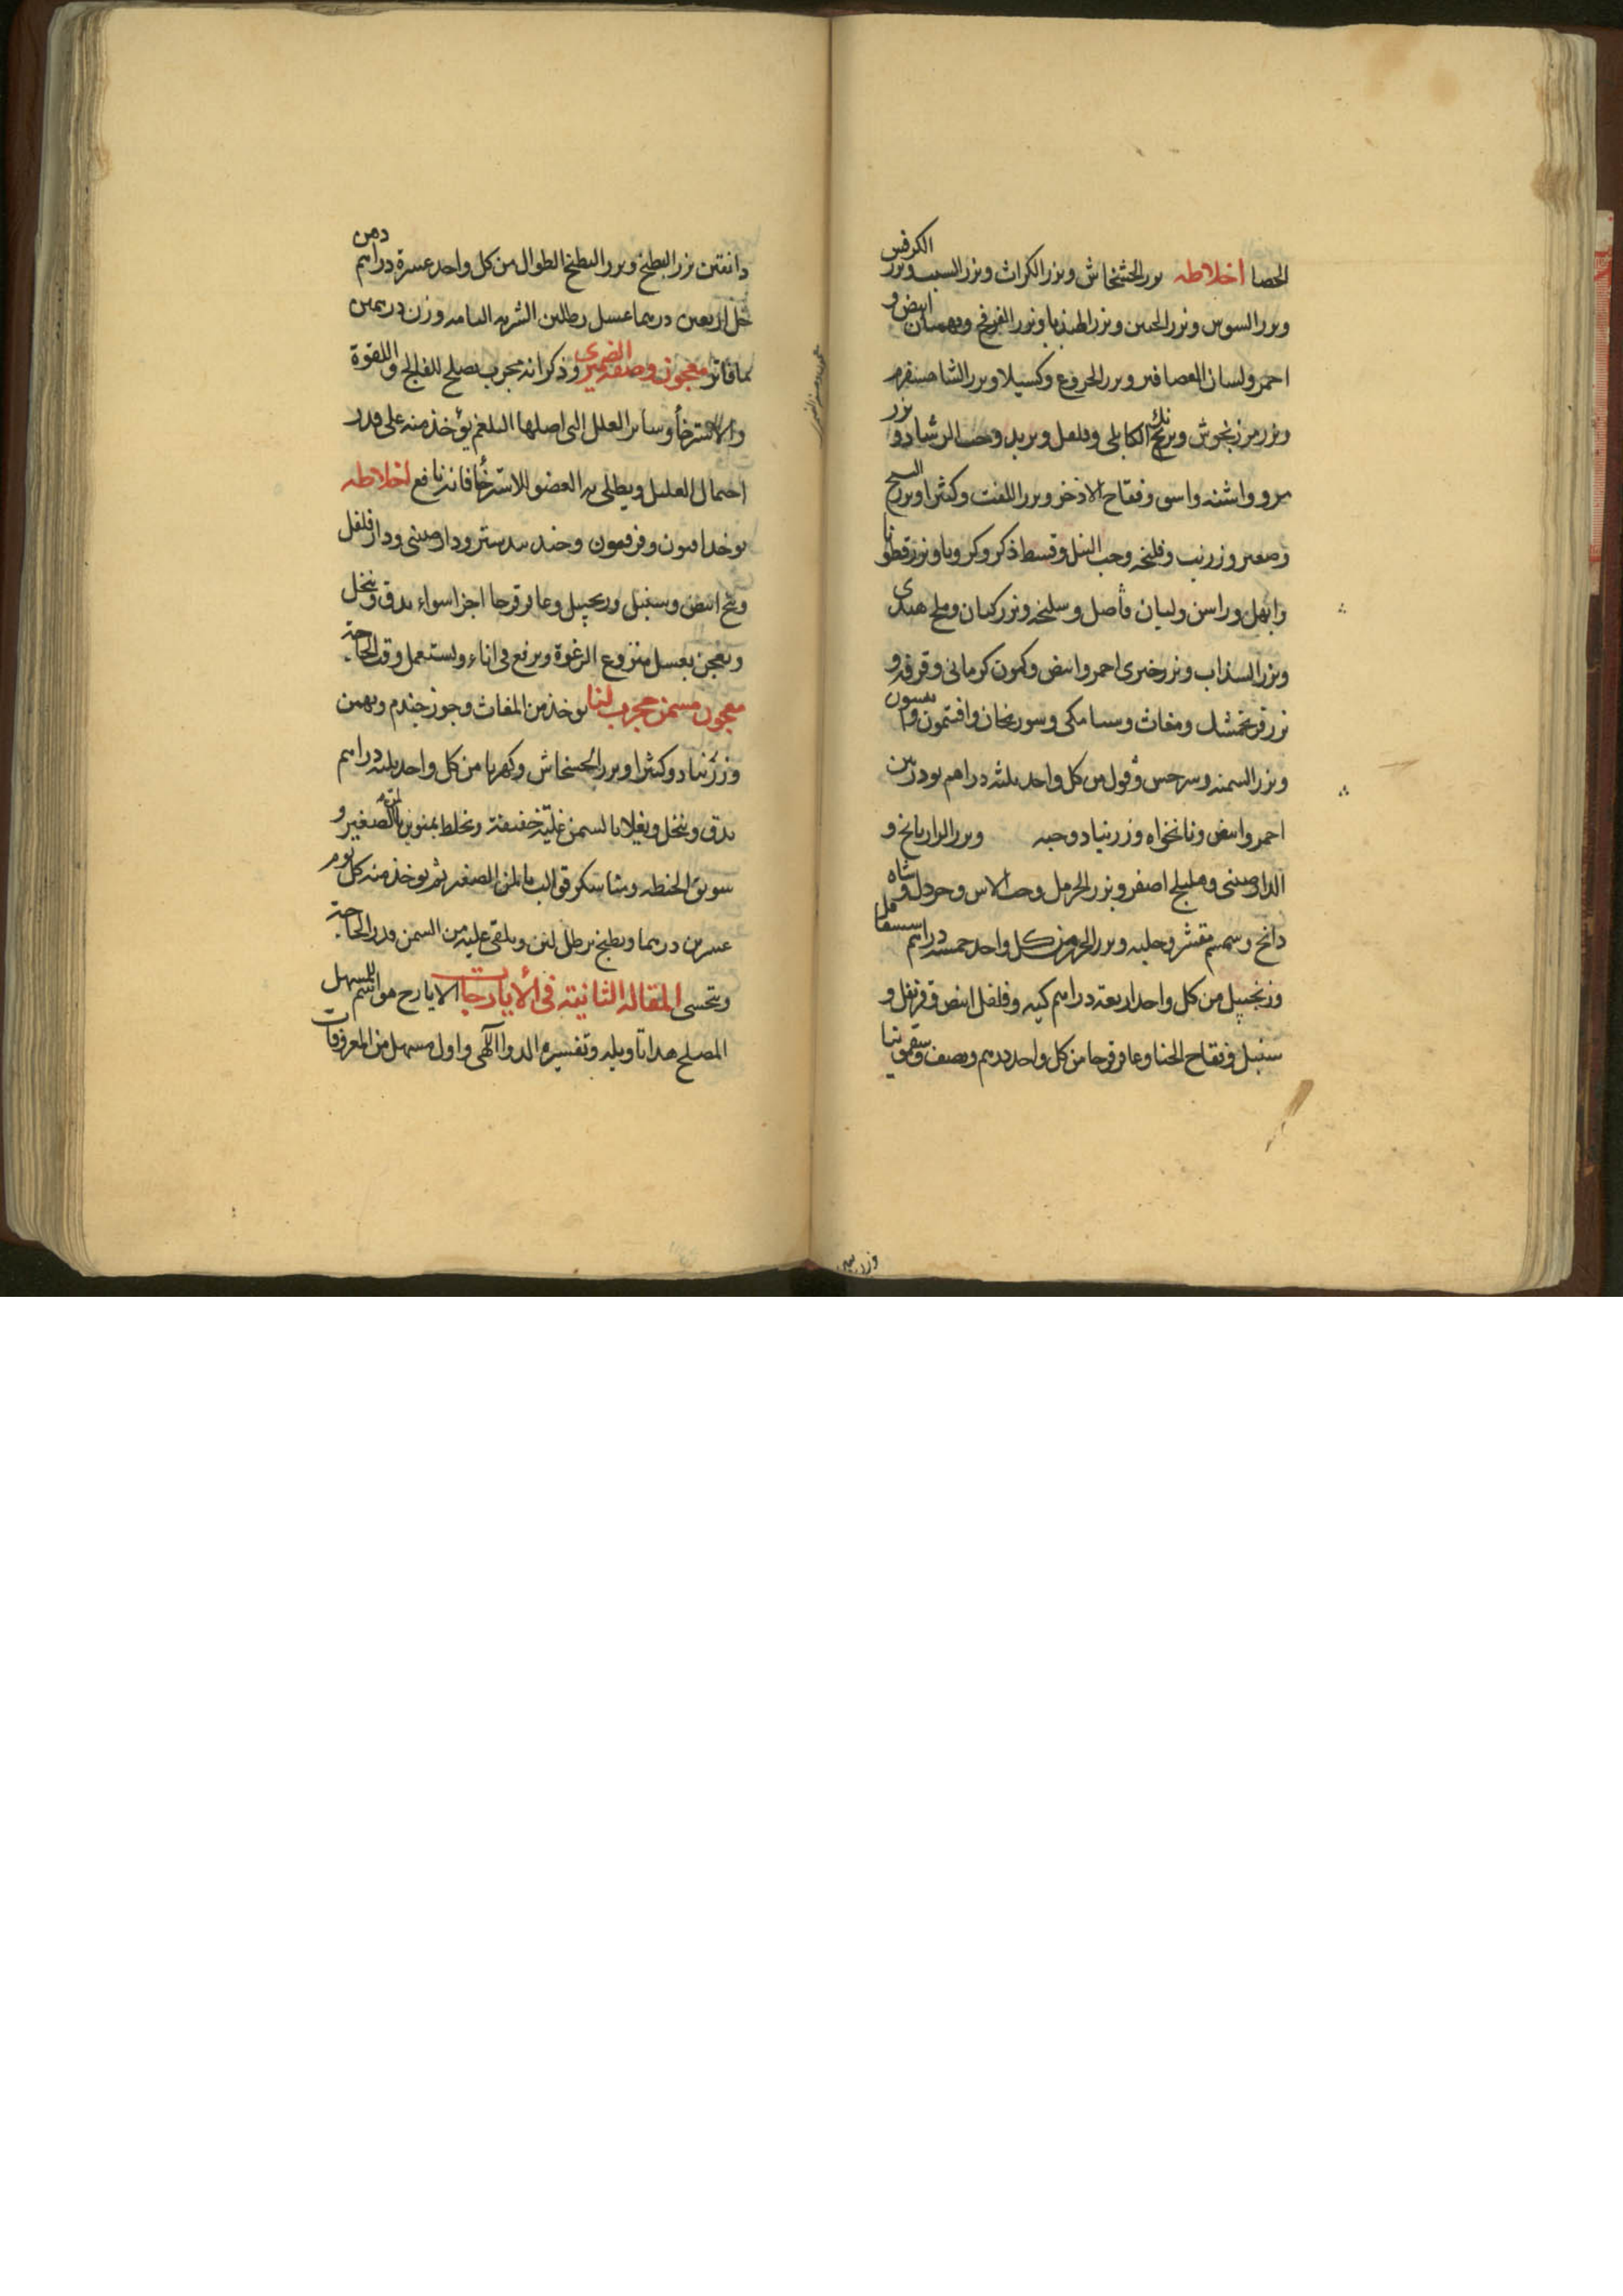 الحصا اخلاطه بزر الخشخاش وبزر الكراث وبزر الشبت وبزر الكرفس
وبزر السوس وبزر الجبن وبزر الهندبا وبزر الفرفخ وبهمنان ابيض و
احمر ولسان العصافير وبزر الخروع وكسيلا وبزر الشاهسفرم
وبزر مرزنجوش وبرنج الكابلى وفلفل وبزيد وحب الرشاد وبزر
مرو واشنه واسى وفقاح الاذخر وبزر اللفت وكثيرا وبزر البنج
وصعتر وزرنب وفلنجه وحب النيل وقسط ذكر وكرويا وبزر قطونا
وابهل وراسن ولبان فاصل وسليخه وبزر كتان وملح هندى
وبزر السذاب وبزر خيرى احمر وابيض وكمون كرمانى وقرفه و
بزر فرنجمشك ومغاث وسنا مكى وسورنجان وافتيمون وانيسون
وبزر السمنه وسرخس وفول من كل واحد ثلثه دراهم تودرين
احمر وابيض ونانخواه وزرنباد وجبه وبزر الرازيانج و
الدارصينى وهليلج اصفر وبزر الحرمل وحب الاس وخردل وشاه
دانج وسمسم مقشر وحلبه وبزر الجزر من كل واحد خمسه دراهم شقاقل
وزنجبيل من كل واحد اربعه دراهم كيه وفلفل ابيض وقرنفل و
سنبل وفقاح الحنا وعاقرقرحا من كل واحد درهم ونصف وسقمونيا
وزن
دانقين بزر البطيخ وبزر البطيخ الطوال من كل واحد عشرة دراهم دهن
خل اربعين درهما عسل رطلين الشربه التامه وزن درهمين
بما فاتر معجون وصفه الضميرى وذكر انه مجرب يصلح للفالج واللقوة
والاسترخا وساير العلل التى اصلها البلغم يؤخذ منه على قدر
احتمال العليل ويطلى به العضو الاسترخا فانه نافع اخلاطه
يوخذ افيون وفرفيون وجند بيدستر ودارصينى ودارفلفل
وبنج ابيض وسنبل وزنجبيل وعاقرقرحا اجزا سواء يدق وينخل
ويعجن بعسل منزوع الرغوة ويرفع فى اناء ويستعمل وقت الحاجة
معجون مسمن مجرب لنا يوخذ من المغاث وجوز جندم وبهمن
وزرنباد وكثيرا وبزر الخشخاش وكهربا من كل واحد ثلثه دراهم
يدق وينخل ويغلا بالسمن غلية خفيفة ويخلط بمنوين بالمن الصغير و
سويق الحنطه ومثله سكر قوالب بالمن الصغير ثم يوخذ منه كل يوم
عشرين درهما ويطبخ برطل لبن ويلقى عليه من السمن قدر الحاجة
ويتحسى المقاله الثانيه فى الايارجات الايارج هو اسم للمسهل
المصلح هذا تاويله وتفسيره الدوا الالهى واول مسهل من المعروفات